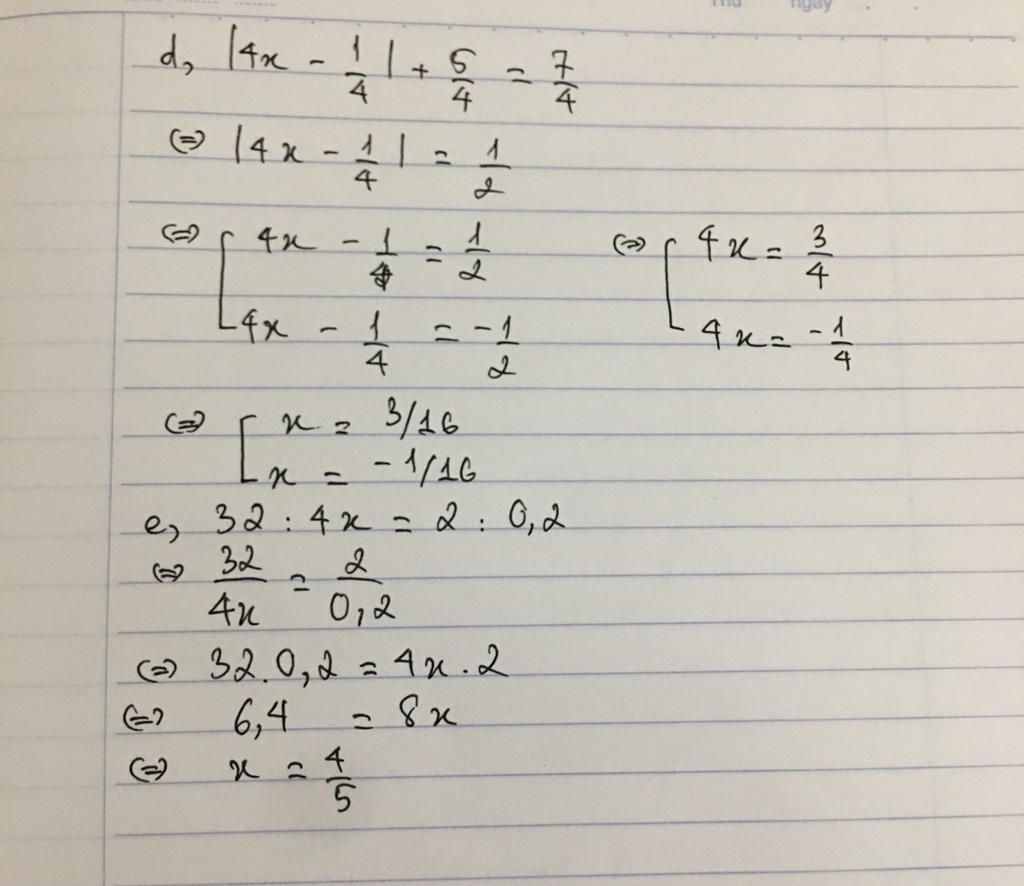 Thứ ngày
d, |4x - 1/4| + 5/4 = 7/4
(=) |4x - 1/4| = 1/2
(=) [ 4x - 1/4 = 1/2 (=) [ 4x = 3/4
4x - 1/4 = -1/2 4x = -1/4
(=) [ x = 3/16
x = -1/16
e, 32 : 4x = 2 : 0,2
(=) 32/4x = 2/0,2
(=) 32.0,2 = 4x.2
(=) 6,4 = 8x
(=) x = 4/5